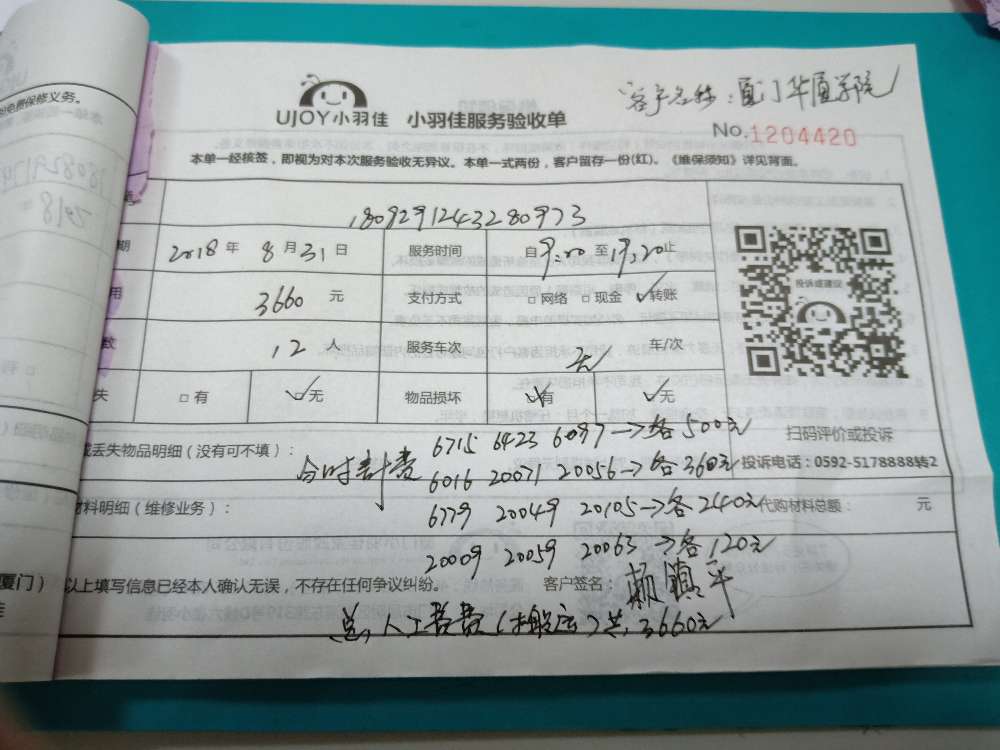 客户名称:厦门华厦学院
UJOY小羽佳 小羽佳服务验收单
No.1204420
免费保修义务。
本单一经核签,即视为对本次服务验收无异议。本单一式两份,客户留存一份(红)。《维保须知》详见背面。
1809291243280973
期 2018年8月31日 服务时间 自9:20至19:20止
投诉或建议
用 3660元 支付方式 □网络 □现金 ☑转账
数 12人 服务车次 无 车/次
失 □有 ☑无 物品损坏 有 ☑无
扫码评价或投诉
或丢失物品明细(没有可不填): 6715 6423 6097→各500元
投诉电话:0592-5178888转2
分时计费 6016 20071 20056→各360元
材料明细(维修业务): 6779 20049 20105→各240元 代购材料总额: 元
20009 20059 20063→各120元
厦门) 以上填写信息已经本人确认无误,不存在任何争议纠纷。 客户签名:
人工费(搬运)共,3660元